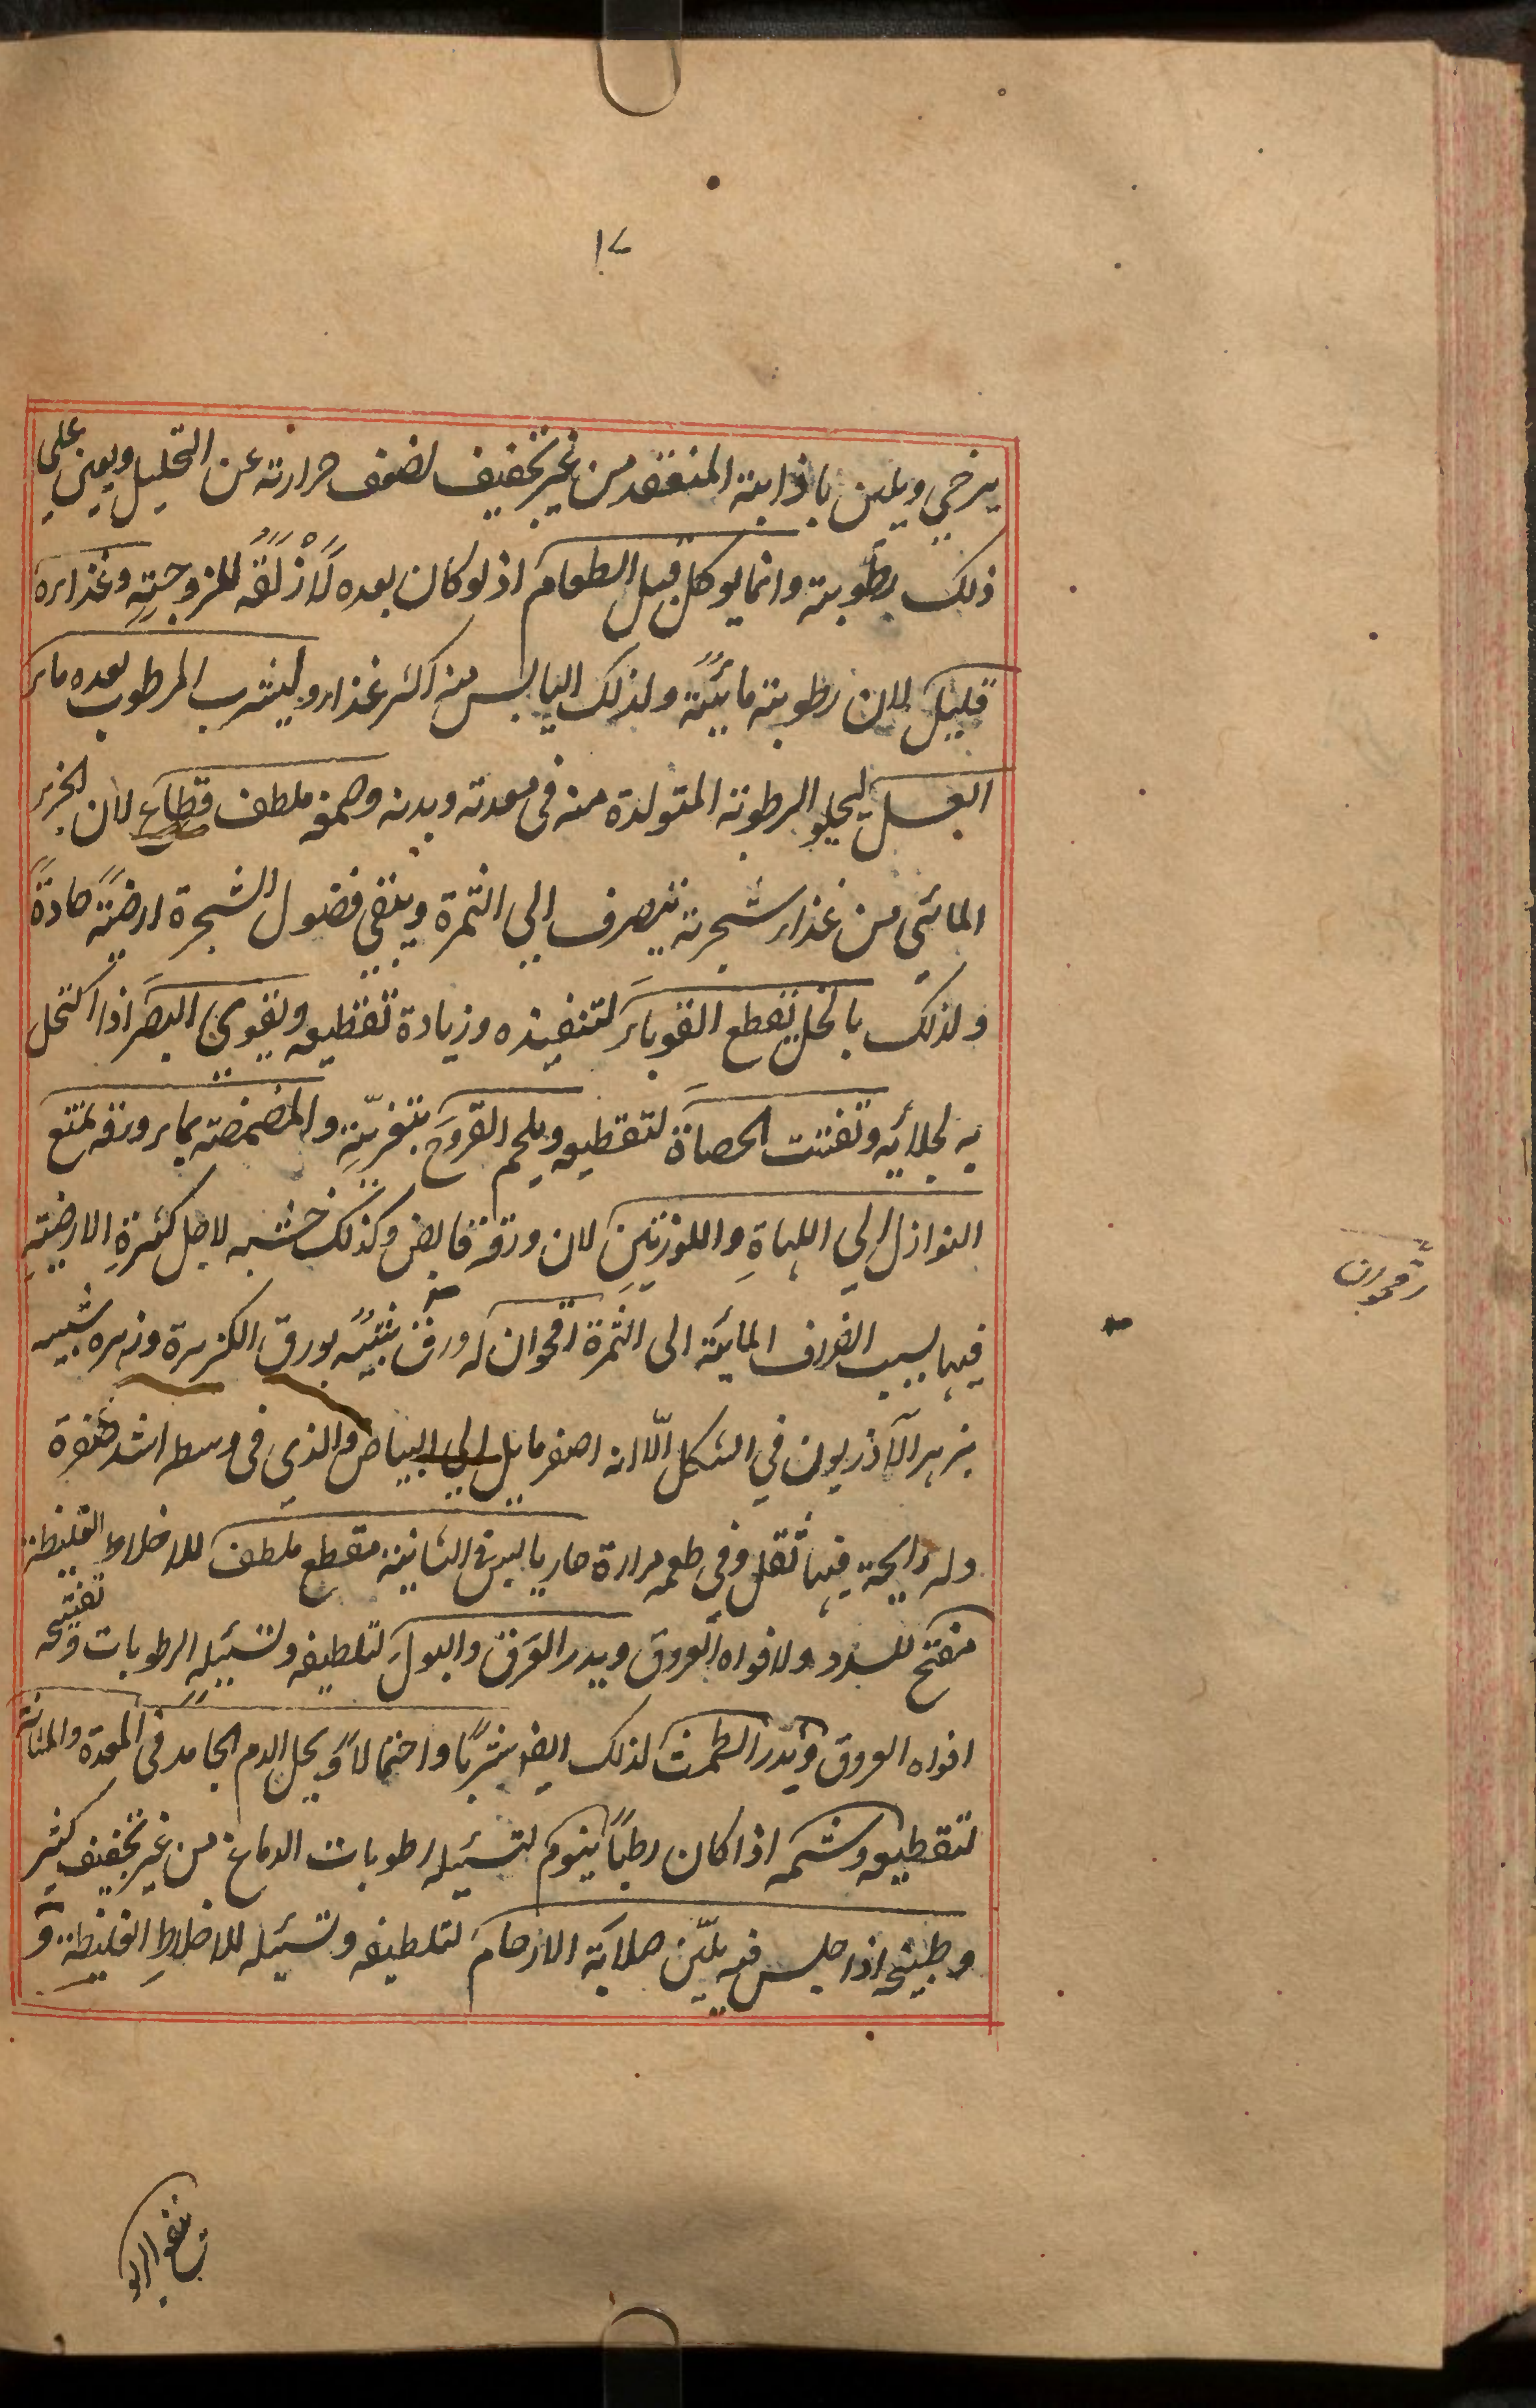 ١٧
يرخي ويلين باذابته المنعقد من غير تجفيف لضعف حرارته عن التحليل ويعين على
ذلك برطوبته وانما يوكل قبل الطعام اذ لو كان بعده لَاَزْلَقَهُ للزوجتِهِ وغذاره
قليل لان رطوبته مائيّة ولذلك اليابس منه اكثر غذاء وليشرب المرطوب بعده ماء
العسل ليجلو الرطوبة المتولدة منه في معدته وبدنه وصمغه ملطف قطاع لان الجزء
المائي من غذاء شجرته ينصرف الي الثمرة ويبقي فضول الشجرة ارضيّةً حادةً
ولذلك بالخل يقطع القوباء لتنفيذه وزيادة تقطيعه ويقوي البصَر اذا اكتحل
به لجلائه وتفتت الحصاة لتقطيعه ويلحم القروحَ بتغريَتِهِ والمضمضة بماء ورقه تمنع
النوازل الي اللهاةِ واللوزتين لان ورقه قابض وكذلك خشبه لاجل كثرة الارضيّةِ
فيها بسبب انصراف المائية الى الثمرة اقحوان له ورق شبيه بورق الكزبرة وزهره شبيه
بزهر الآذريون في الشكل الّا انه اصفر مايل الي البياض والذي في وسطه اشد صفرة
وله رايحة فيها ثقل وفي طعمه مرارة حار يابس في الثانية مقطع ملطف للاخلاط الغليظة
مفتح للسدد ولافواه العروق ويدر العَرَق والبولَ لتلطيفه وتسييلِهِ الرطوبات وتفتيحه
افواه العروق ويدر الطمث لذلك ايضا شربًا واحتمالاً ويحل الدم الجامد في المعدة والمثانة
لتقطيعه وشمه اذا كان رطباً ينوم لتسييله رطوبات الدماغ من غير تجفيف كثير
وطبيخه اذا جلس فيه يليّن صلابة الارحام لتلطيفه وتسييله للاخلاطِ الغليظة و
اقحوان